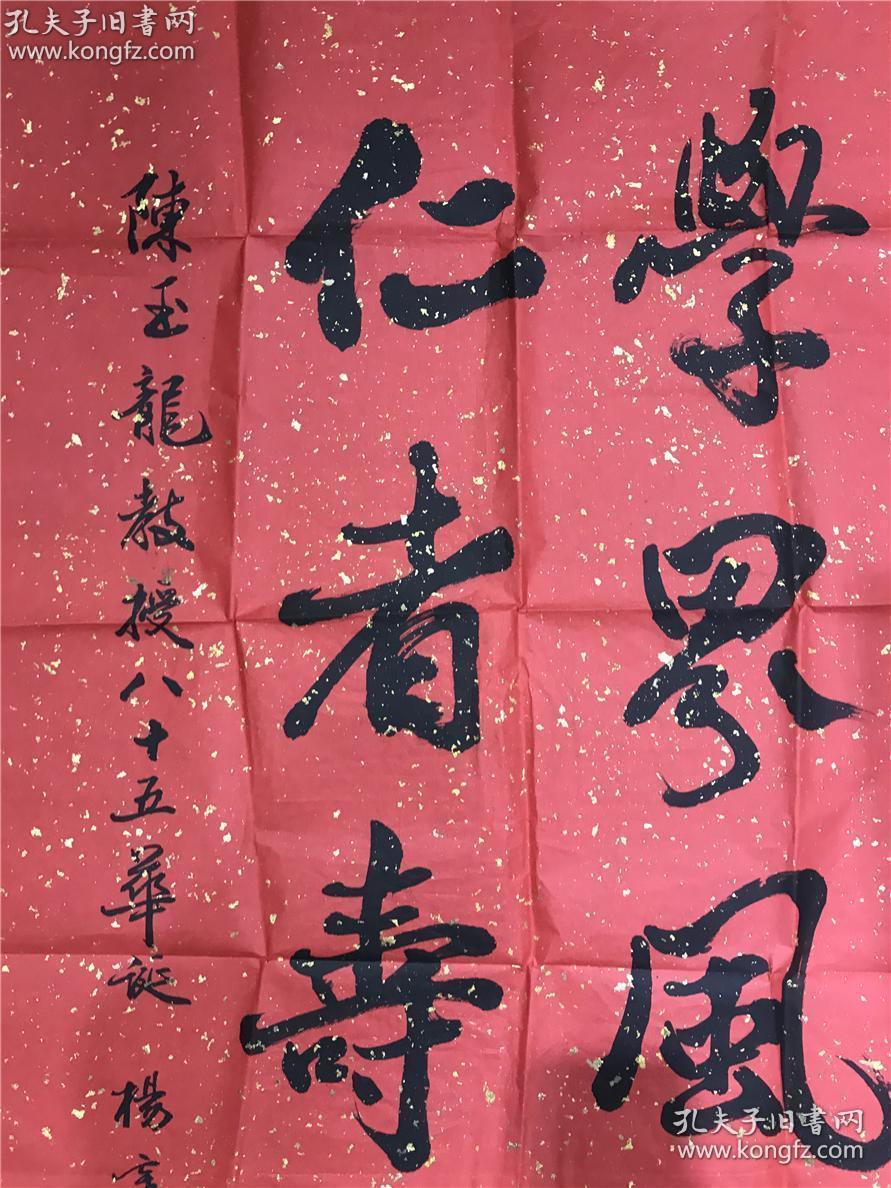 孔夫子旧书网
www.kongfz.com
學界風
仁者壽
陳玉龍教授八十五華誕 楊
孔夫子旧书网
www.kongfz.com